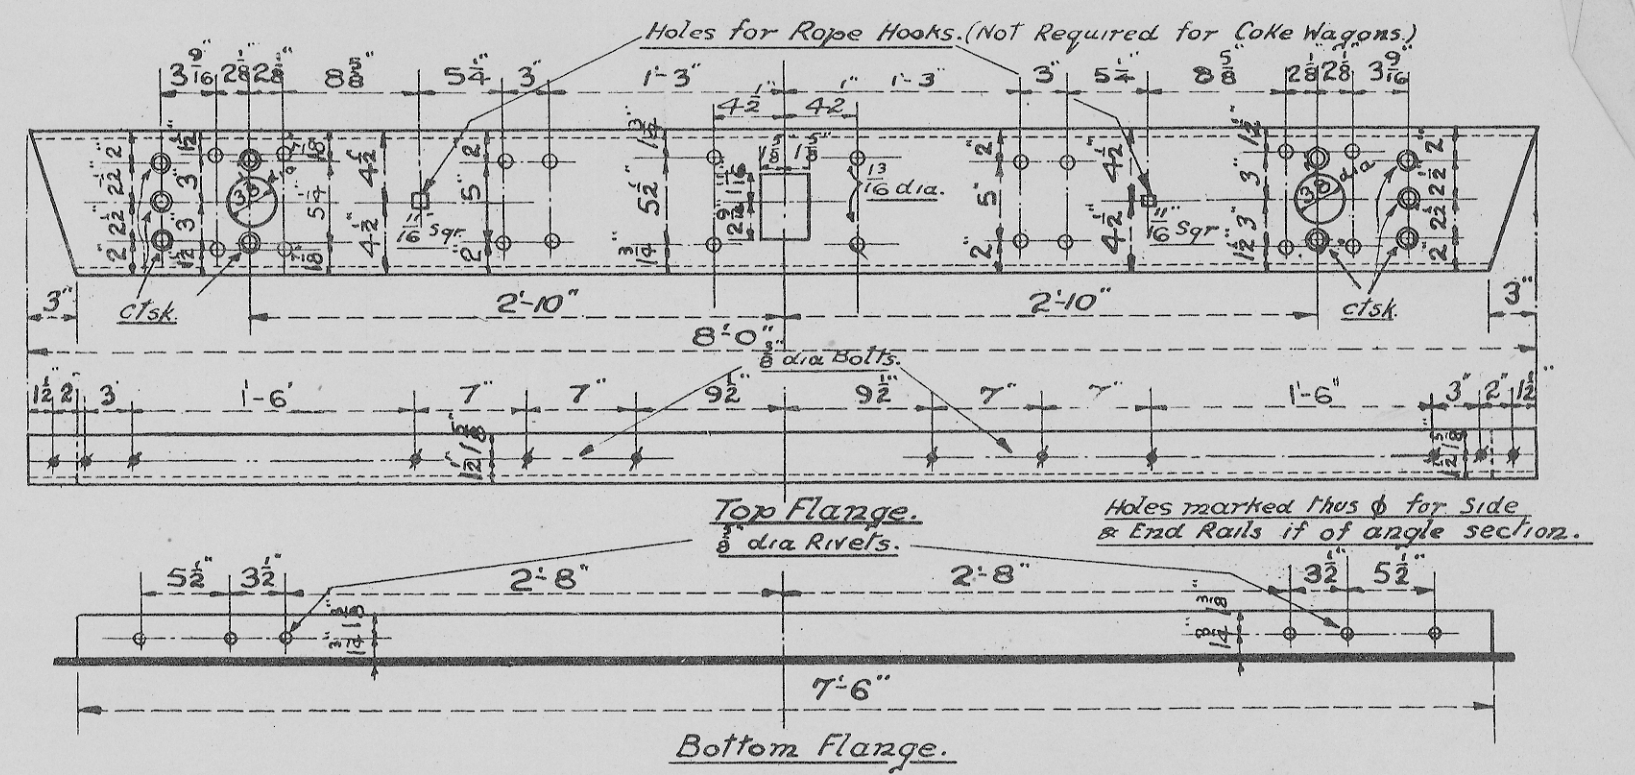 Holes for Rope Hooks. (Not Required for Coke Wagons.)
3 9/16" 2 1/8" 2 1/8" 8 5/8" 5 1/4" 3" 1'-3" 1'-3" 3" 5 1/4" 8 5/8" 2 1/8" 2 1/8" 3 9/16"
4 1/2" 4 1/2"
1 5/8" 1 5/8"
2" 2 1/2" 2 1/2" 2"
1 1/2" 3" 3" 1 1/2"
1 7/8" 5 1/4" 1 7/8"
4 1/2" 4 1/2"
2" 5" 2"
1 3/4" 5 1/2" 1 3/4"
13/16 dia.
2" 5" 2"
4 1/2" 4 1/2"
1 1/2" 3" 3" 1 1/2"
dia
2" 2 1/2" 2 1/2" 2"
11/16" Sqr.
11/16" Sqr
ctsk.
ctsk.
3" 2'-10" 2'-10" 3"
8'-0"
5/8" dia Bolts.
1 1/2" 2" 3" 1'-6" 7" 7" 9 1/2" 9 1/2" 7" 7" 1'-6" 3" 2" 1 1/2"
1 5/8" 1 1/2"
1 5/8" 1 1/2"
Top Flange.
Holes marked thus ϕ for Side
& End Rails if of angle section.
5/8" dia Rivets.
5 1/2" 3 1/2" 2'-8" 2'-8" 3 1/2" 5 1/2"
1 3/8" 1 3/4"
1 3/8" 1 3/4"
7'-6"
Bottom Flange.